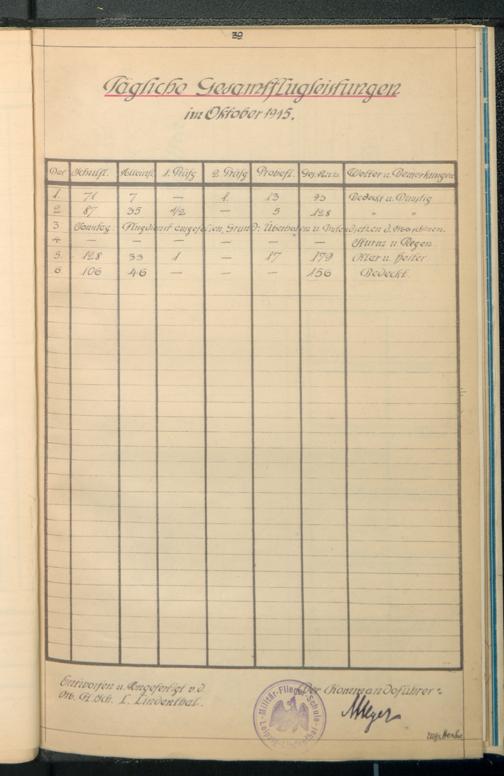 39
Tägliche Gesamtflugleistungen
im Oktober 1915.
Dat Schulfl. Alleinfl. 1. Prüfg 2. Prüfg Probefl. Ges. Wetter u. Bemerkungen
1. 71 7 — 1. 13 93 Bedeckt u. Dunstig
2 87 35 1/2 — 5 128 " "
3 Sonntag. Flugdienst Grund: Überholen u. d. Maschinen.
4 — — — — — — Sturm u. Regen
5. 128 33 1 — 17 179 Klar u. heiter
6 106 46 — — 156 Bedeckt.
Entworfen u. Angefertigt v. d.
L. Lindenthal.
Der Kommandoführer:
Militär-Flieger-Schule